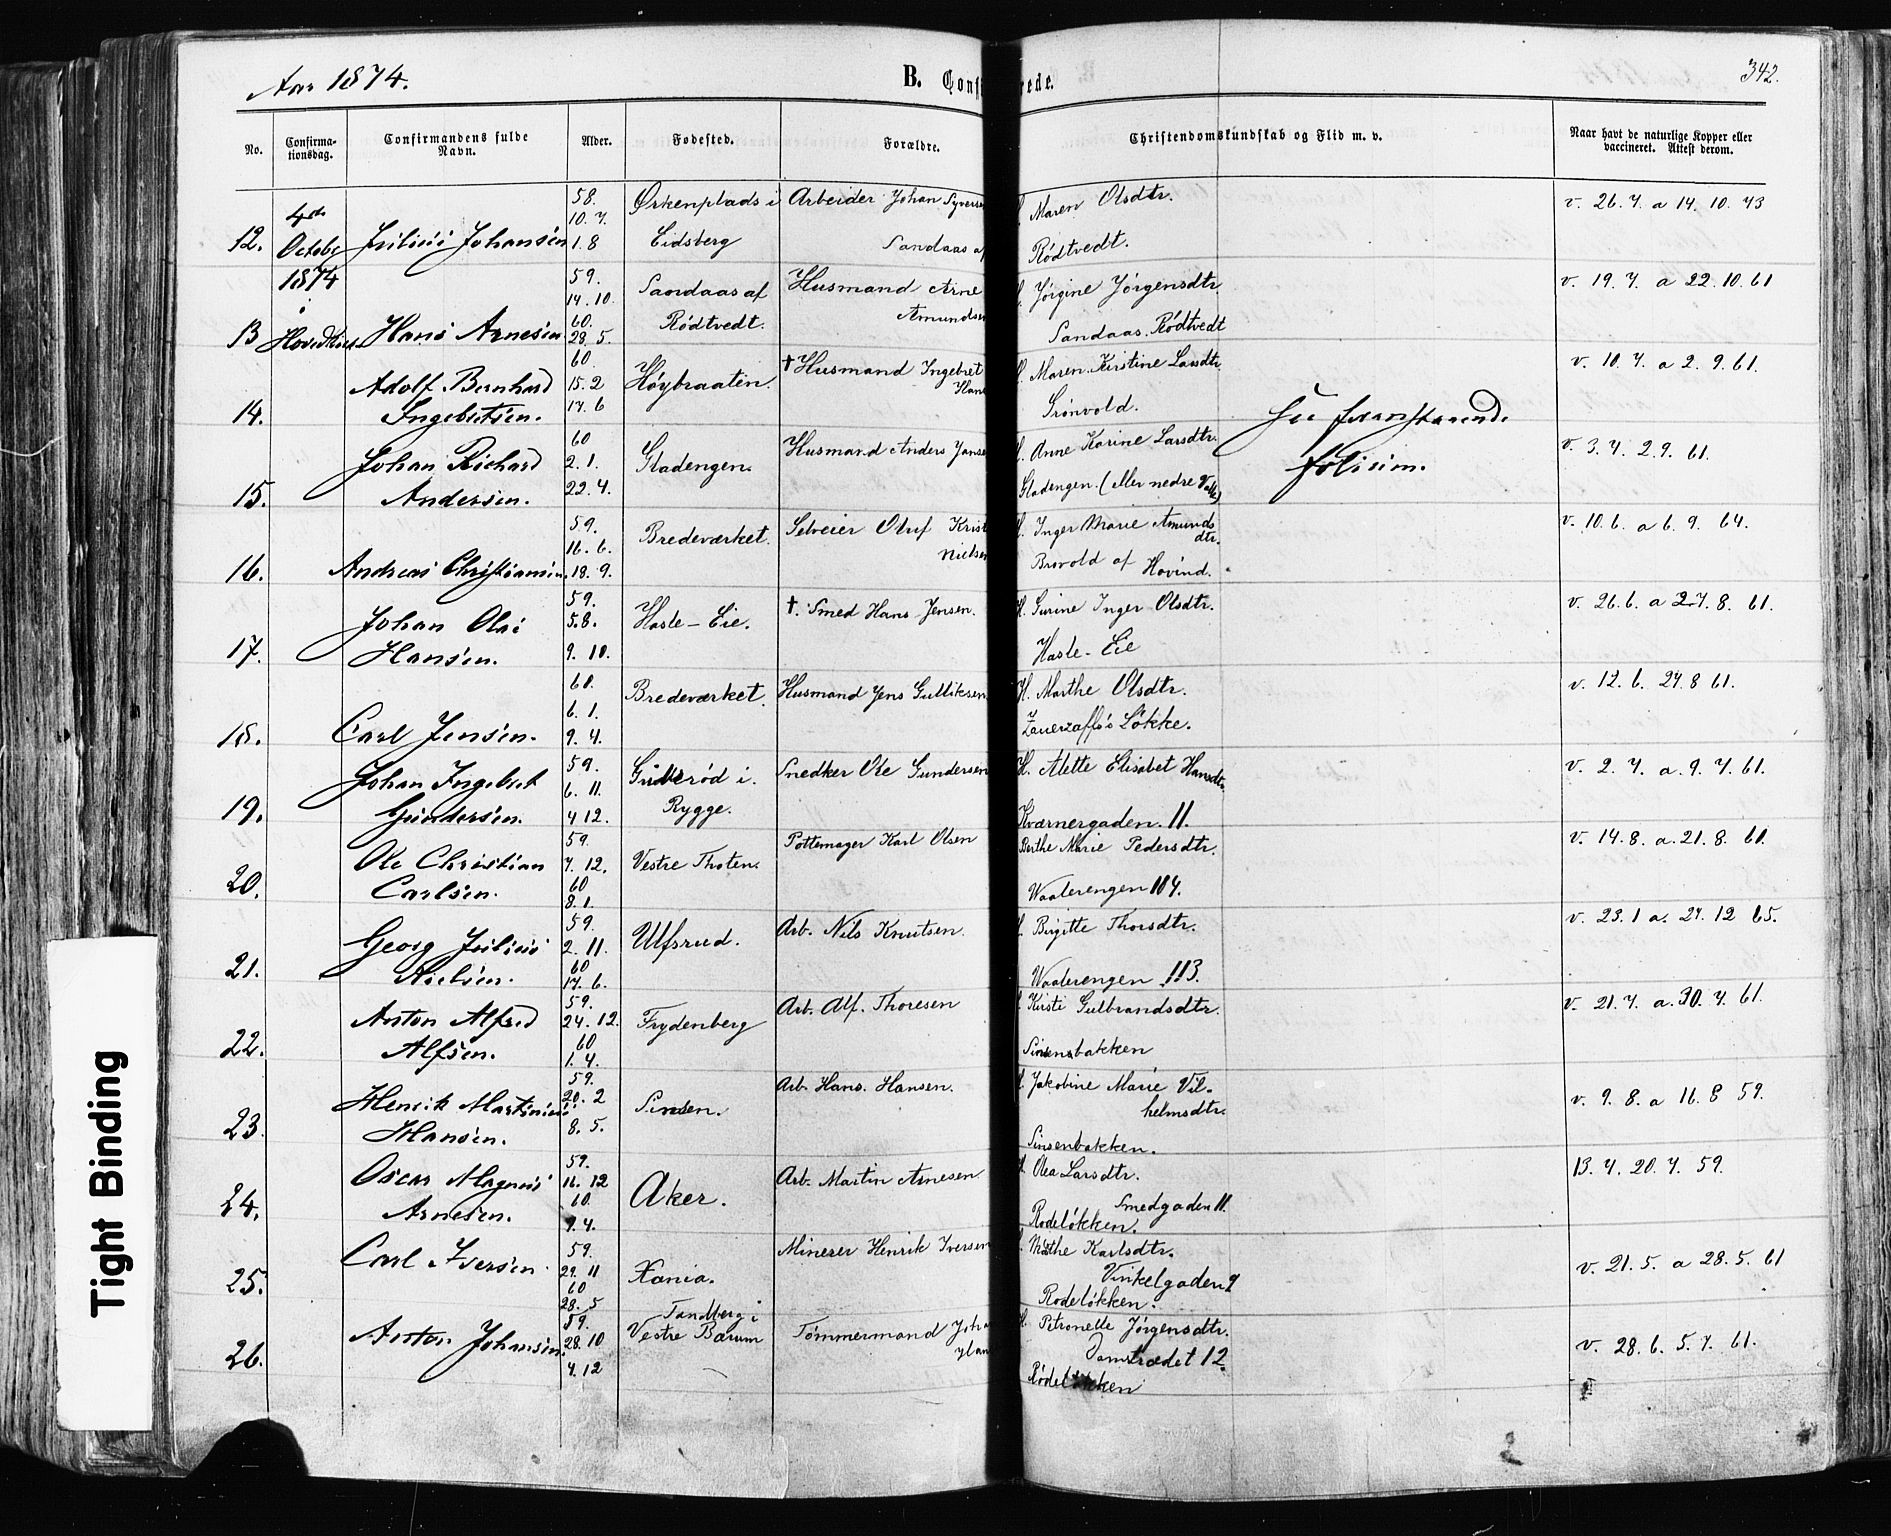 Aar 1874.
B. Confi rede.
342.
No.
Confirma-
tionsdag.
Confirmandens fulde
Navn.
Alder.
Fødested.
Forældre.
Christendomskundskab og Flid m. v.
Naar havt de naturlige Kopper eller
vaccineret. Attest derom.
4de
October
1874
i
12. Julius Johansen
58.
10. 7.
1. 8
Ørkenplads i
Eidsberg
Arbeider Johan Syvers
Sandaas af
Maren Olsdtr.
Rödtvedt.
v. 26. 7. a 14. 10. 73
13 Hans Arnesen
59.
14. 10.
60.
28. 5.
Sandaas af
Rödtvedt.
Husmand Arne
Amundsen
Jörgine Jörgensdtr
Sandaas. Rödtvedt
v. 19. 7. a 22. 10. 61
14. Adolf Bernhard
Ingebretsen.
60
15. 2
17. 6
Höybraaten.
† Husmand Ingebret
Hans
Maren Kirstine Larsdtr.
Grönvold.
v. 10. 7. a 2. 9. 61.
Se foranstaaende
folium.
15. Johan Richard
Andersen.
60
2. 1.
22. 4.
Gladengen.
Husmand Anders Jans
Anne Karine Larsdtr.
Gladengen. (eller nedre Valle)
v. 3. 7. 2. 9. 61.
16. Andreas Christiansen.
59.
16. 6.
18. 9.
Bredeværket.
Selveier Oluf Krist
Nielsen
Inger Marie Amunds
dtr.
Brovold af Hovind.
v. 10. 6. a 6. 9. 64.
17. Johan Olai
Hansen.
59.
5. 8.
9. 10.
Hasle-Eie.
†. Smed Hans Jensen.
H. Gurine Inger Olsdtr.
Hasle-Eie
v. 26. 6. a 27. 8. 61.
18. Carl Jensen.
60.
6. 1.
9. 4.
Bredeværket.
Husmand Jens Gulliksen
H. Marthe Olsdtr.
Løkke.
v. 12. 6. 27. 8 61.
19. Johan Ingebret
Gundersen.
59.
6. 11.
4 12.
rød i.
Rygge.
Snedker Ole Gundersen
H. Alette Elisabet Hansdtr.
Kværnergaden. 11.
v. 2. 7. a. 9. 7. 61.
20. Ole Christian
Carlsen.
59.
7. 12.
60
8. 1.
Vestre Thoten.
Pottemager Karl Olsen
Berthe Marie Pedersdtr.
Waalerengen 104.
v. 14. 8. a. 21. 8. 60.
21. Georg Julius
Nielsen.
59.
2. 11.
60
17. 6.
Ulfsrud.
Arb. Nils Knutsen.
Birgitte Thorsdtr.
Waalerengen 113.
v. 23. 1 a. 27. 12 65.
22. Anton Alfred
Alfsen.
59.
24. 12.
60
1. 4.
Frydenberg
Arb. Alf. Thoresen
Kirsti Gulbrandsdtr.
Sinsenbakken
v. 21. 7. a. 30. 7. 61.
23. Henrik Martinius
Hansen.
59.
20. 2
8. 5.
Sinsen.
Arb. Hans. Hansen.
Jakobine Marie Vil-
helmsdtr.
Sinsenbakken.
v. 9. 8. a 16. 8 59.
24. Oscar Magnus
Arnesen.
59.
16. 12
60.
9. 4.
Aker.
Arb. Martin Arnesen
Olea Larsdtr.
Smedgaden 11.
Rodeløkken.
13. 7. 20. 7. 59.
25. Carl Iversen
59.
29. 11
60
28. 5
Xania.
Minerer Henrik Iversen
Mathe Karlsdtr.
Vinkelgaden 9
Rodeløkken.
v. 21. 5. a 28. 5. 61
26. Anton Johansen.
59.
28. 10
4. 12
Tandberg i
Vestre Bærum
Tømmermand Joha
H. Petronelle Jørgensdtr.
Damstrædet 12.
Rødeløkken
v. 28. 6. 5. 7. 61.
Tight Binding